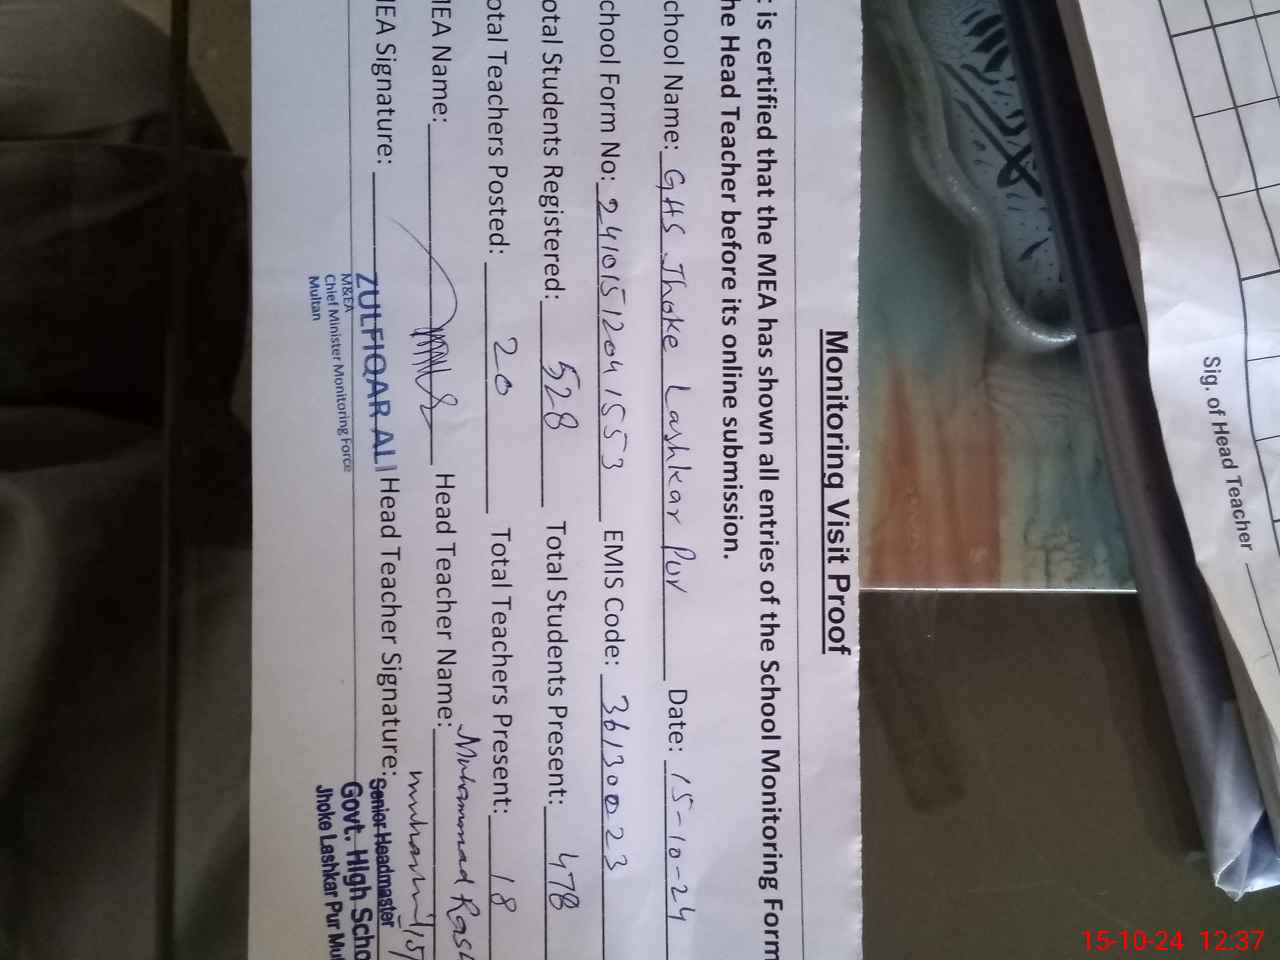 Monitoring Visit Proof
: is certified that the MEA has shown all entries of the School Monitoring Form
he Head Teacher before its online submission.
chool Name: GHS Jhoke Lashkar Pur Date: 15-10-24
chool Form No: 24101512041553 EMIS Code: 36130023
otal Students Registered: 528 Total Students Present: 478
otal Teachers Posted: 20 Total Teachers Present: 18
MEA Name: Head Teacher Name: Muhammad
MEA Signature: ZULFIQAR ALI Head Teacher Signature:
M&EA
Chief Minister Monitoring Force
Multan
Senior Headmaster
Govt. High Scho
Jhoke Lashkar Pur Mul
Sig. of Head Teacher
15-10-24 12:37